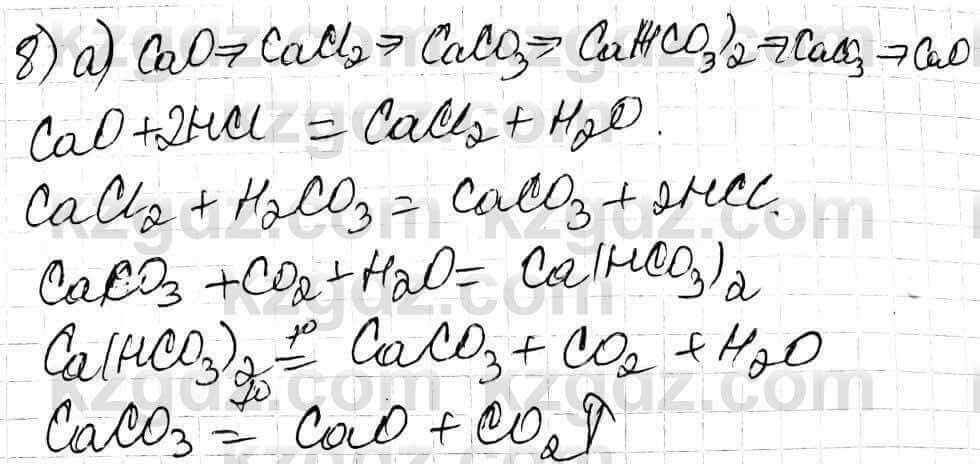 8) а) CaO → CaCl₂ → CaCO₃ → Ca(HCO₃)₂ → CaCO₃ → CaO
CaO + 2HCl = CaCl₂ + H₂O.
CaCl₂ + H₂CO₃ = CaCO₃ + 2HCl.
CaCO₃ + CO₂ + H₂O = Ca(HCO₃)₂
Ca(HCO₃)₂ =(t°) CaCO₃ + CO₂ + H₂O
CaCO₃ =(t°) CaO + CO₂↑
kzgdz.com